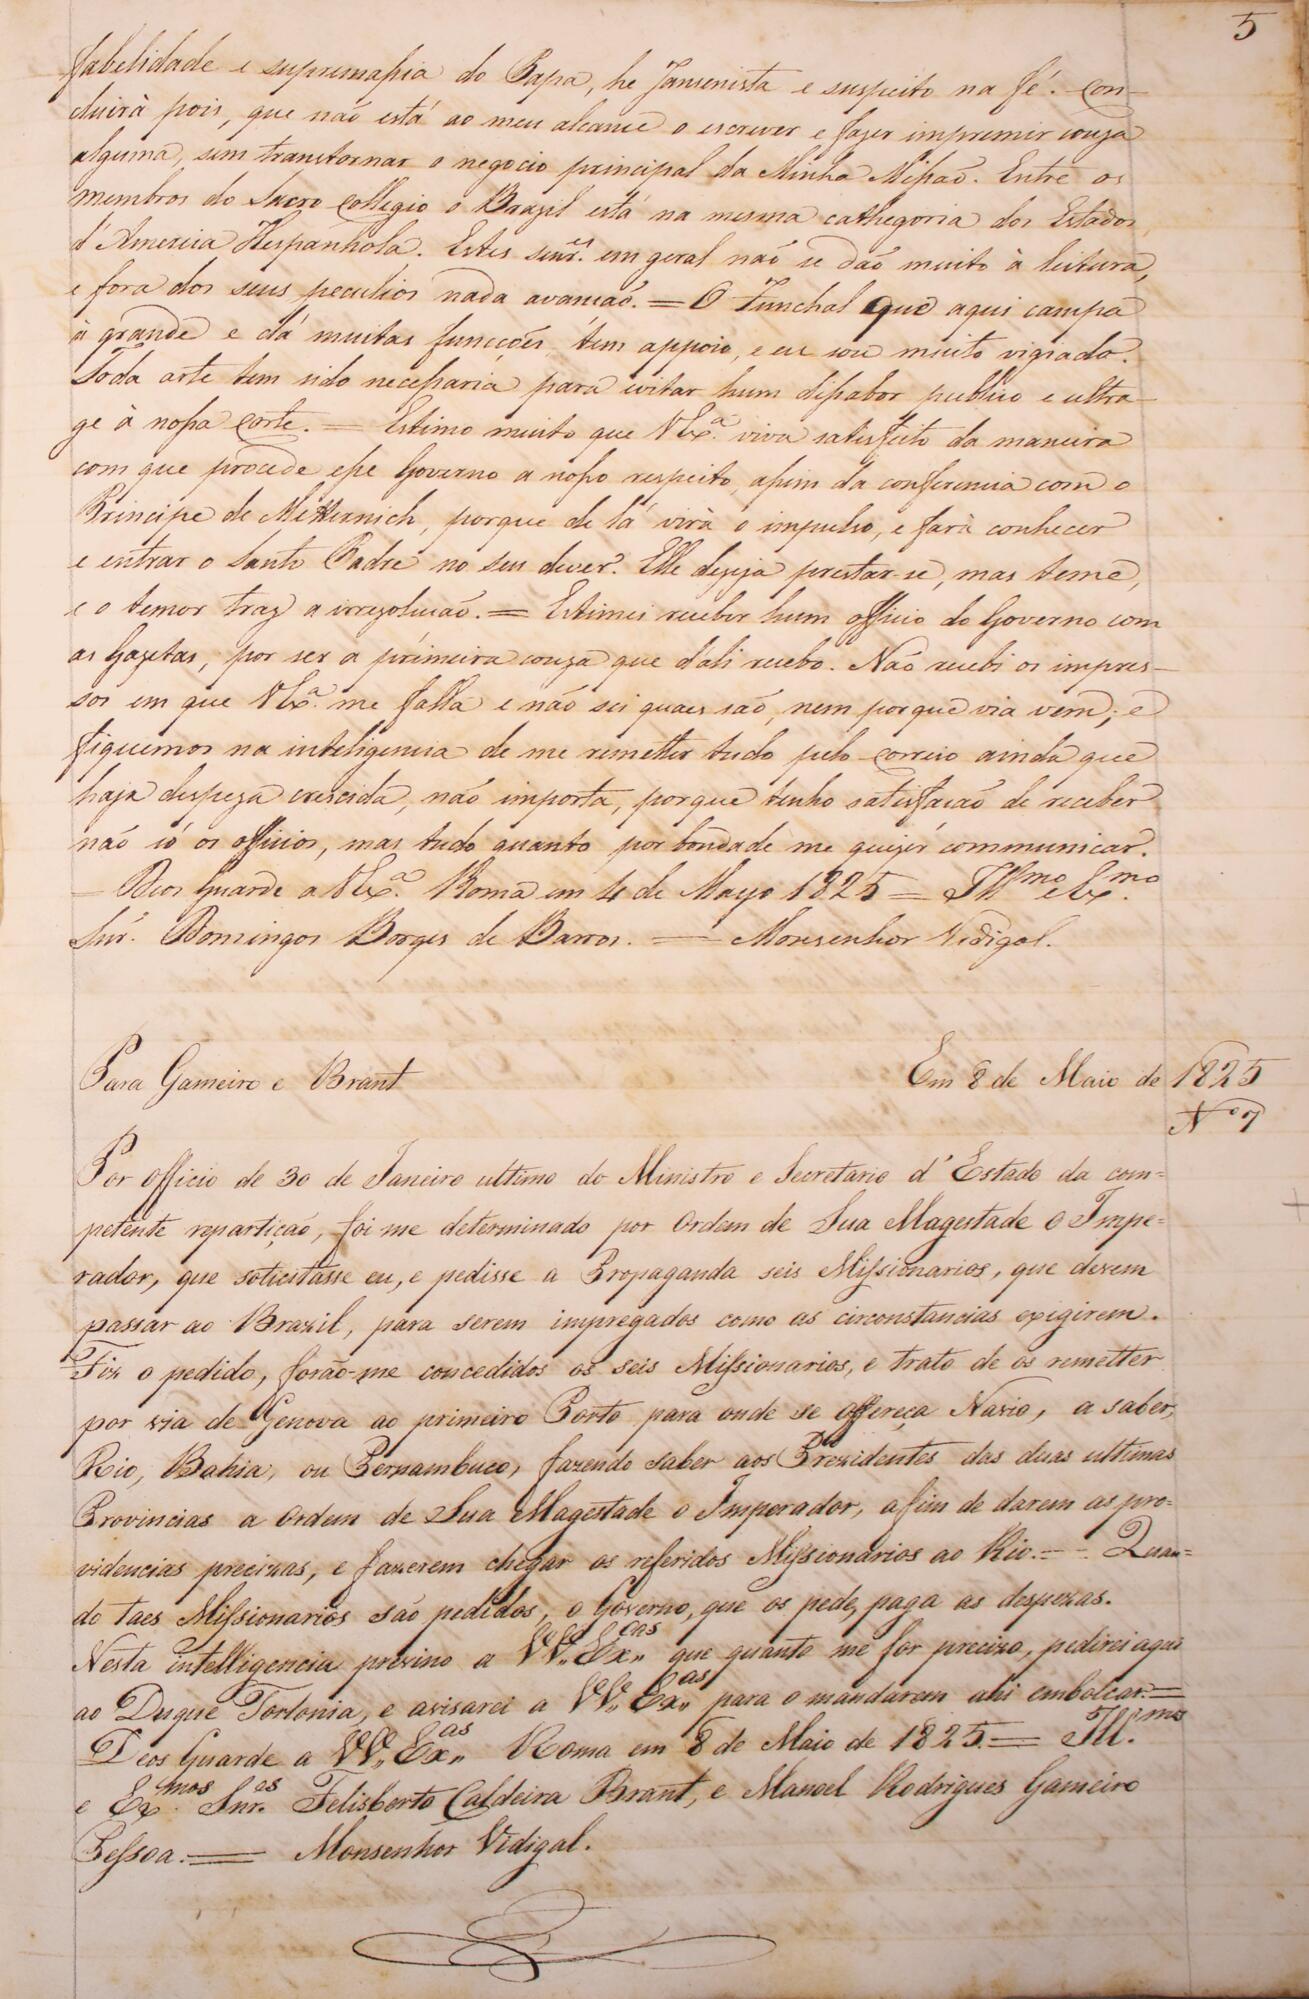 5
fabelidade e supremassia do Papa, he Jansenista e suspeito na fé. Con-
cluirà pois, que não está ao meu alcance o escrever e fazer imprimir couza
alguma, sem transtornar o negocio principal da Minha Missaõ. Entre os
membros do Sacro Collegio o Brazil está na mesma cathegoria dos Estados
d'America Hespanhola. Estes senr.es em geral naõ se daõ muito à leitura,
e fora dos seus peculios nada avansaõ. = O Funchal que aqui campa
à grande e dá muitas funcções, tem appoio, e eu sou muito vigiado.
Toda arte tem sido necessaria para evitar hum dissabor publico e ultra-
ge à nossa Corte. = Estimo muito que V Ex.a viva satisfeito da maneira
com que procede esse Governo a nosso respeito, assim da conferencia com o
Principe de Metternich, porque de lá virà o impulso, e farà conhecer
e entrar o Santo Padre no seu dever. Elle dezeja prestar-se, mas teme,
e o temor traz a irrezolucaõ. = Estimei receber hum officio do Governo com
as Gazetas, por ser a primeira couza que d'ali recebo. Não recebi os impres-
sos em que V Ex.a me falla e não sei quaes saõ, nem porque via vem; e
fiquemos na inteligencia de me remetter tudo pelo correio ainda que
haja despeza crescida, não importa, porque tenho satisfacaõ de receber
não só os officios, mas tudo quanto por bondade me quizér communicar.
= Deos Guarde a V Ex.a Roma em 4 de Mayo 1825 = Ill.mo e Ex.mo
Snr. Domingos Borges de Barros. = Monsenhor Vidigal.
Para Gameiro e Brant Em 8 de Maio de 1825
Nº 7
Por officio de 30 de Janeiro ultimo do Ministro e Secretario d'Estado da com=
petente repartição, foi me determinado por Ordem de Sua Magestade O Impe=
rador, que solicitasse eu, e pedisse a Propaganda seis Missionarios, que devem
passar ao Brazil, para serem impregados como as circonstancias exigirem.
Fiz o pedido, forão-me concedidos os seis Missionarios, e trato de os remetter
por via de Genova ao primeiro Porto para onde se offereça Navio, a saber,
Rio, Bahia, ou Pernambuco, fazendo saber aos Prezidentes das duas ultimas
Provincias a Ordem de Sua Magestade o Imperador, afim de darem as pro=
videncias precizas, e fazerem chegar os referidos Missionarios ao Rio.= Quan=
do taes Missionarios são pedidos, o Governo, que os pede, paga as despezas.
Nesta intelligencia previno a VV. Ex.cas que quanto me for precizo, pedirei aqui
ao Duque Torlonia, e avisarei a VV. Ex.as para o mandarem ahi embolcar.=
Deos Guarde a VV. Ex.as Roma em 8 de Maio de 1825.= Ill.mos
e Ex.mos Snr.es Felisberto Caldeira Brant, e Manoel Rodrigues Gameiro
Pessoa.= Monsenhor Vidigal.